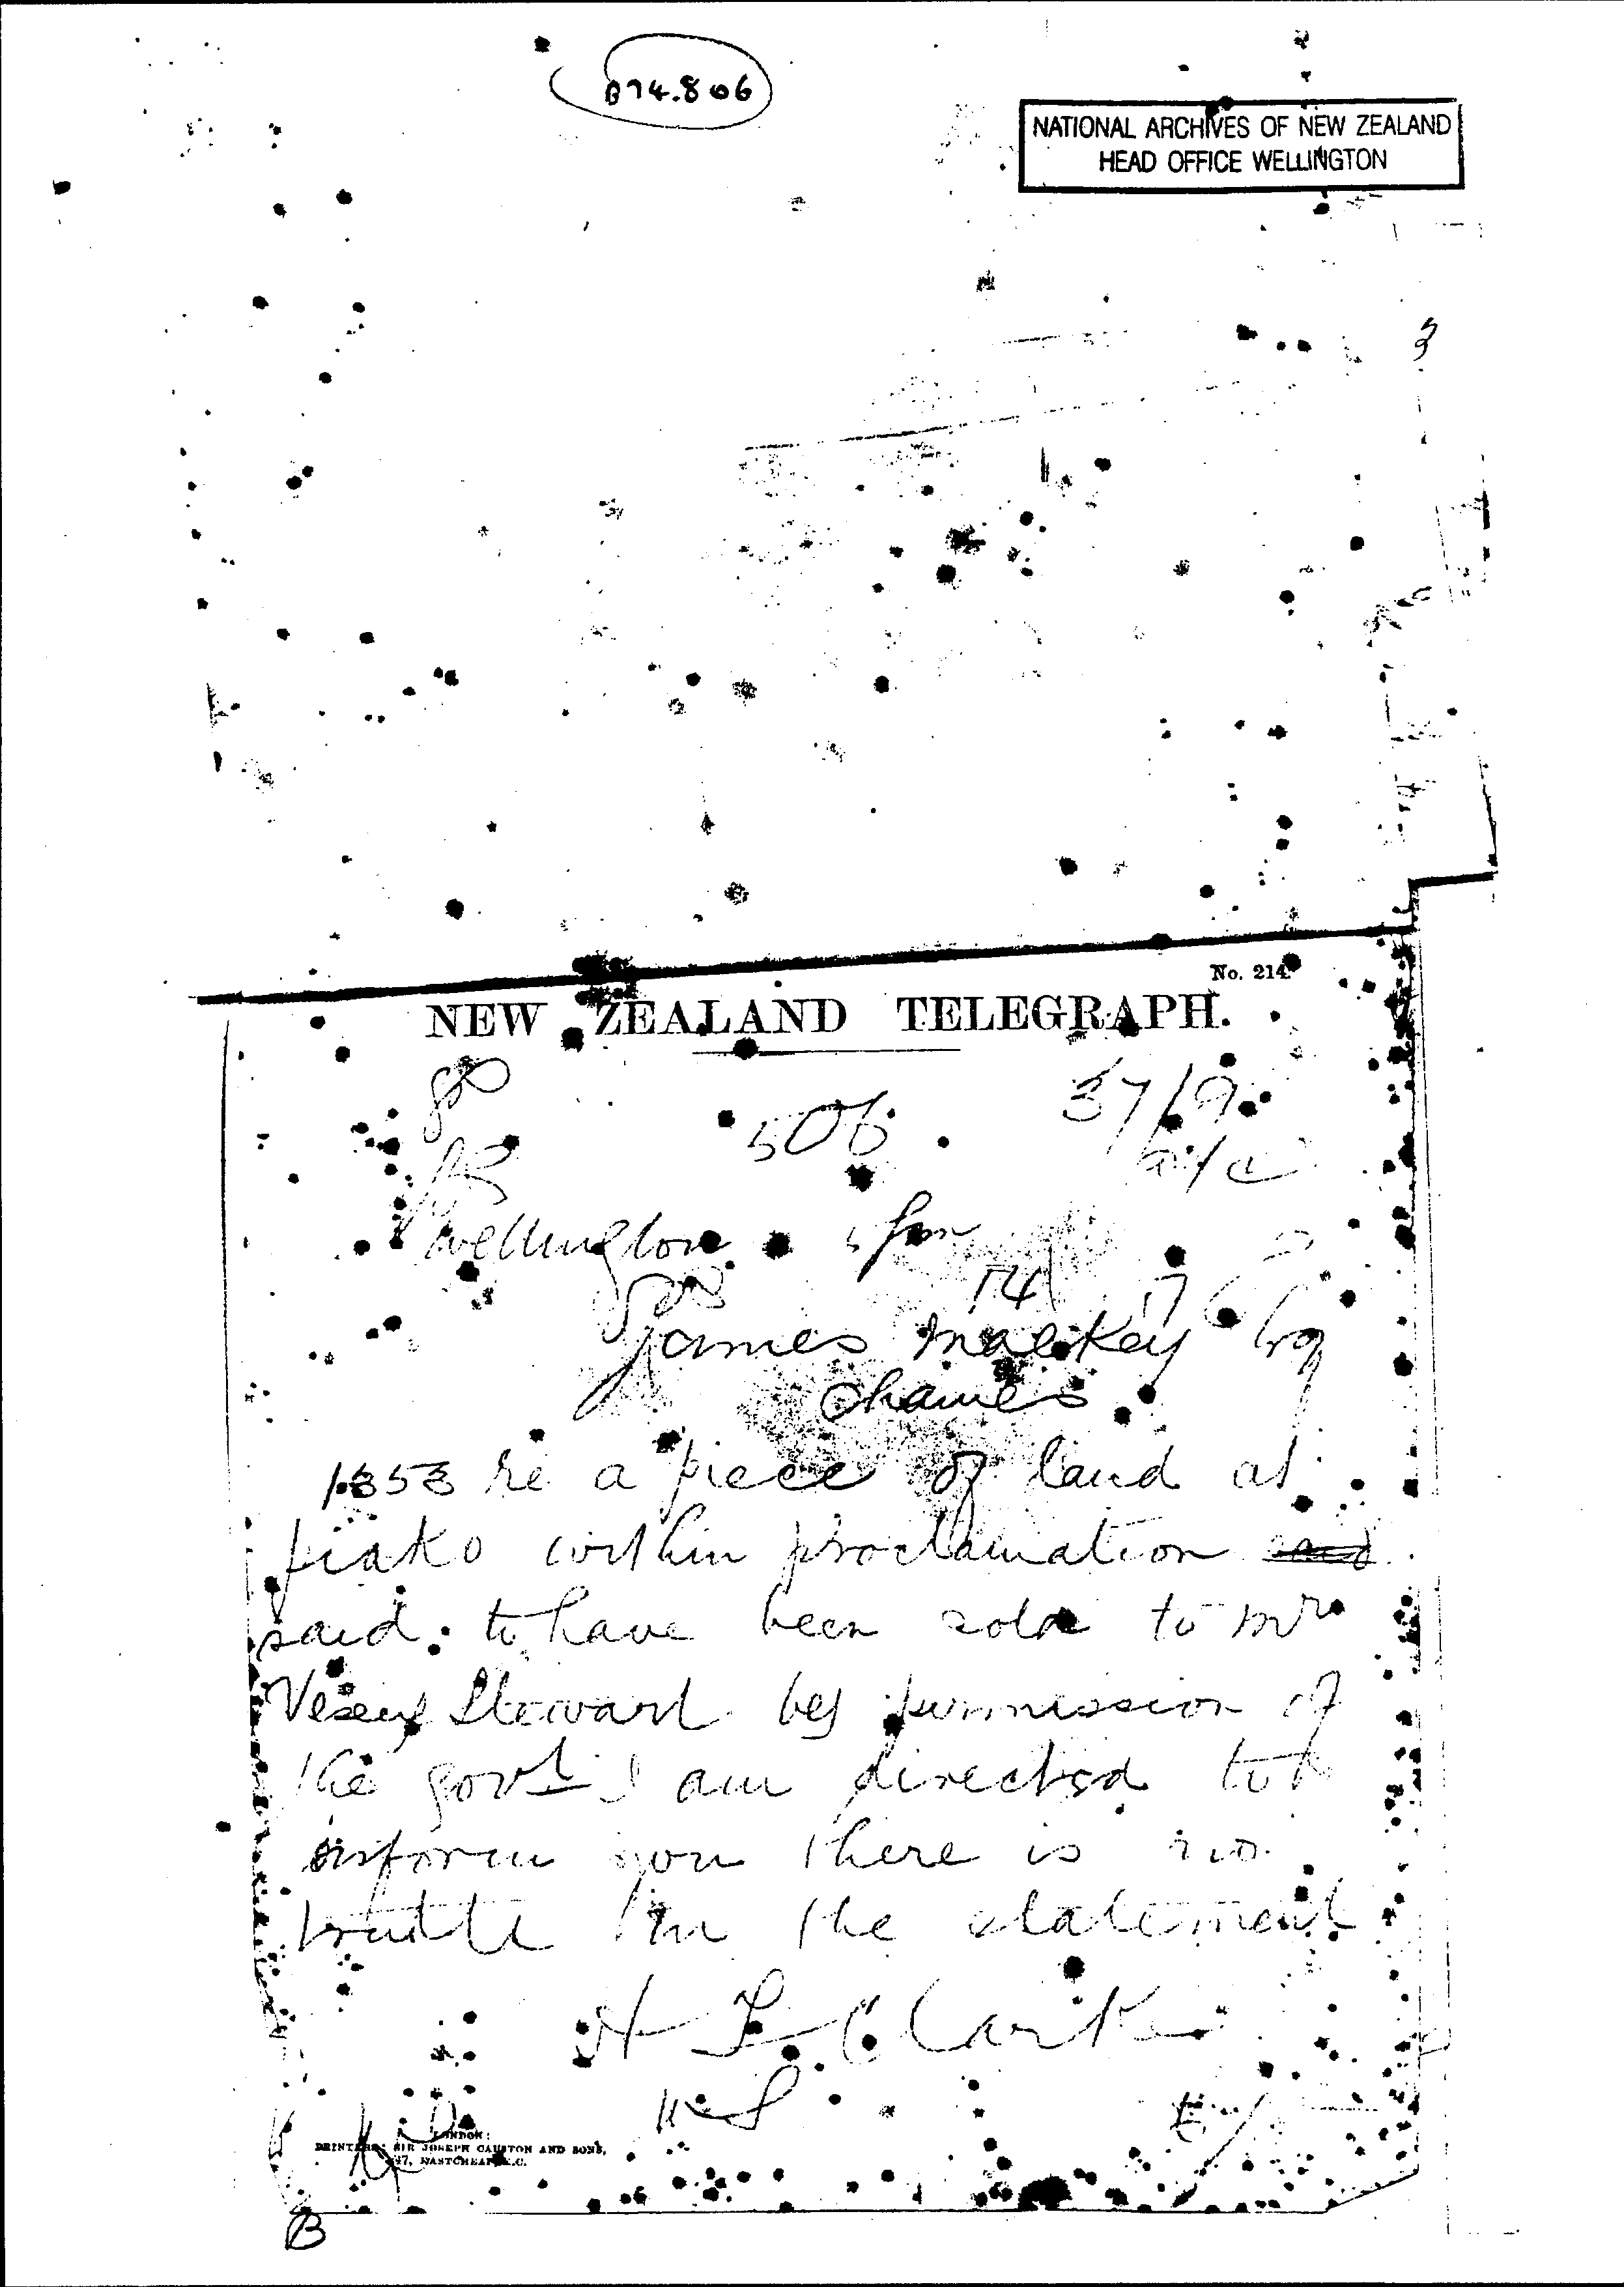 874.806
NATIONAL ARCHIVES OF NEW ZEALAND
HEAD OFFICE WELLINGTON
3
No. 214.
NEW ZEALAND TELEGRAPH.
506
37/9
Wellington
14 7 6
James Mackay Esq
Thames
1353 re a piece of land at
piako within proclamation
said to have been sold to Mr
Vesey Stewart by permission of
the govt I am directed to
inform you there is no
truth in the statement
H T Clarke
LONDON:
PRINTERS: SIR JOSEPH CAUSTON AND SONS,
47, EASTCHEAP, E.C.
B